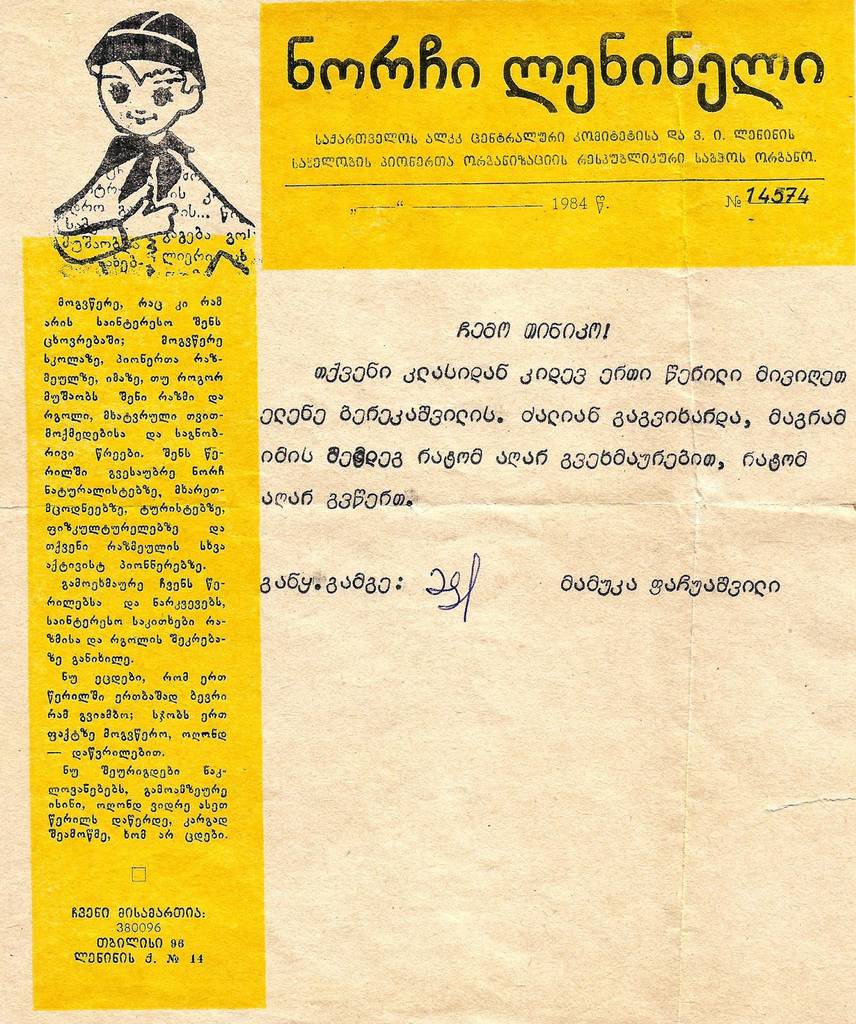 ნორჩი ლენინელი
საქართველოს ალკკ ცენტრალური კომიტეტისა და ვ. ი. ლენინის
სახელობის პიონერთა ორგანიზაციის რესპუბლიკური საბჭოს ორგანო.
„———“ ——————— 1984 წ.
№ 14574
ჩემო თინიკო!
თქვენი კლასიდან კიდევ ერთი წერილი მივიღეთ
ელენე ბერეკაშვილის. ძალიან გაგვიხარდა, მაგრამ
იმის შემდეგ რატომ აღარ გვეხმაურებით, რატომ
აღარ გვწერთ.
განყ.გამგე:
მამუკა ფაჩუაშვილი
მოგვწერე, რაც კი რამ
არის საინტერესო შენს
ცხოვრებაში; მოგვწერე
სკოლაზე, პიონერთა რაზ-
მეულზე, იმაზე, თუ როგორ
მუშაობს შენი რაზმი და
რგოლი, მხატვრული თვით-
მოქმედებისა და საგნობ-
რივი წრეები. შენს წე-
რილში გვესაუბრე ნორჩ
ნატურალისტებზე, მხარეთ-
მცოდნეებზე, ტურისტებზე,
ფიზკულტურელებზე და
თქვენი რაზმეულის სხვა
აქტივისტ პიონნერებზე.
გამოეხმაურე ჩვენს წე-
რილებსა და ნარკვევებს,
საინტერესო საკითხები რა-
ზმისა და რგოლის შეკრება-
ზე განიხილე.
ნუ ეცდები, რომ ერთ
წერილში ერთბაშად ბევრი
რამ გვიამბო; სჯობს ერთ
ფაქტზე მოგვწერო, ოღონდ
— დაწვრილებით.
ნუ შეურიგდები ნაკ-
ლოვანებებს, გამოამზეურე
ისინი, ოღონდ ვიდრე ასეთ
წერილს დაწერდე, კარგად
შეამოწმე, ხომ არ ცდები.
ჩვენი მისამართია:
380096
თბილისი 96
ლენინის ქ. № 14